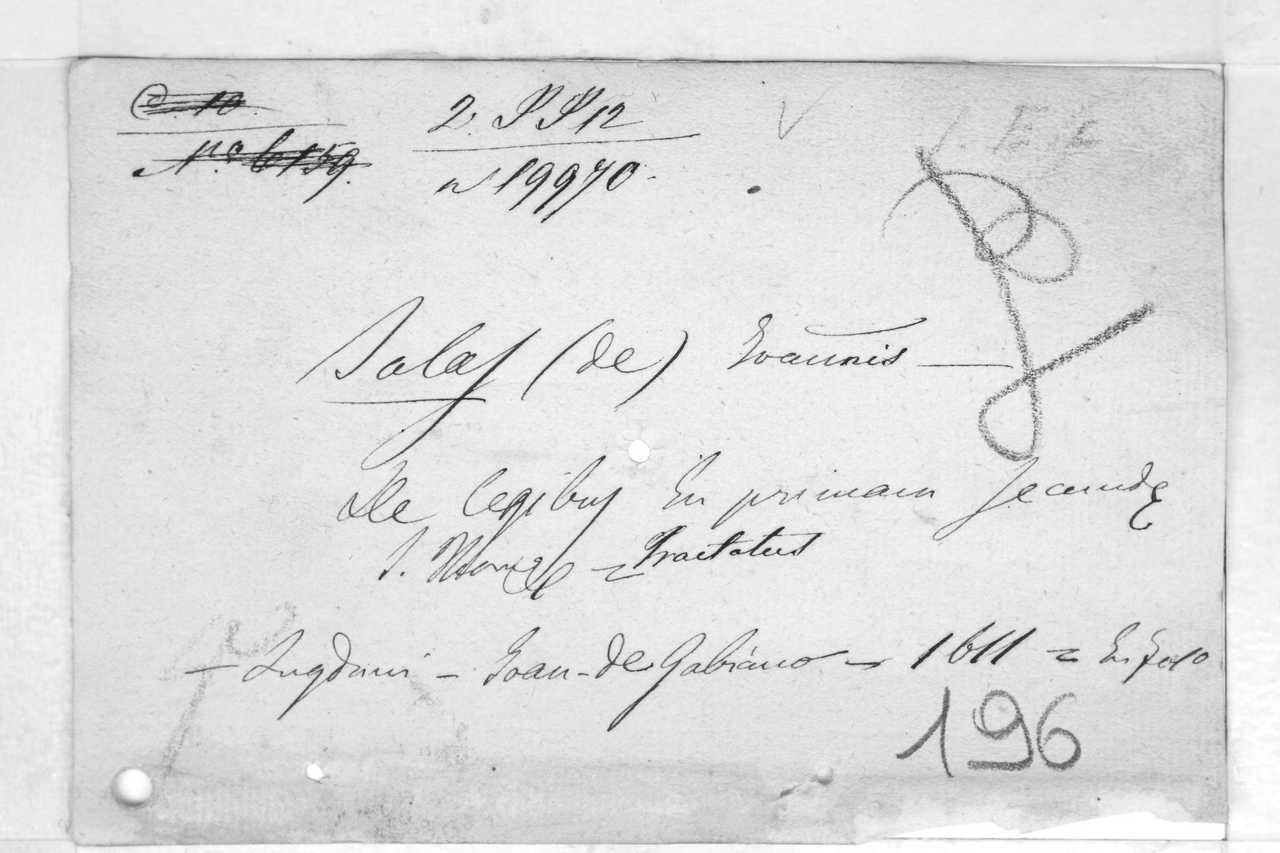 2. PP 12
nº 19970.
Salas (de) Ioannis —
De legibus In primam secundæ
S. Thomæ = Tractatus
— Lugduni — Ioan. de Gabiano — 1611 = In folo
196